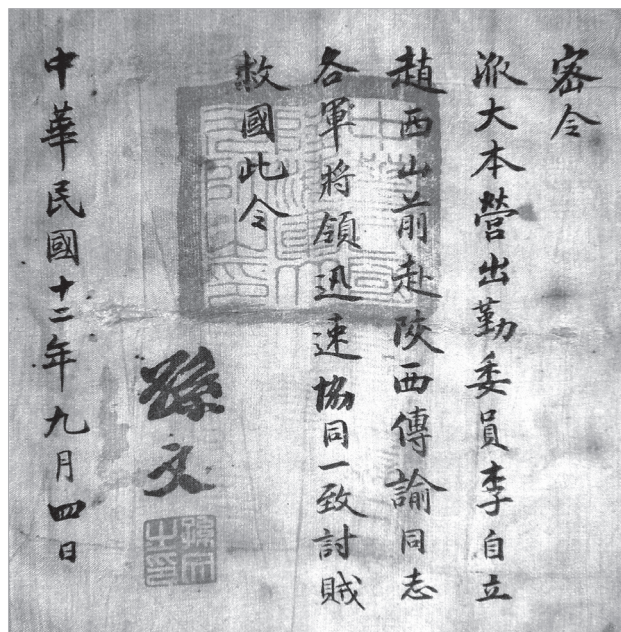 密令
派大本營出勤委員李自立
趙西山前赴陝西傳諭同志
各軍將領迅速協同一致討賊
救國此令
孫文
孫文之印
中華民國十二年九月四日